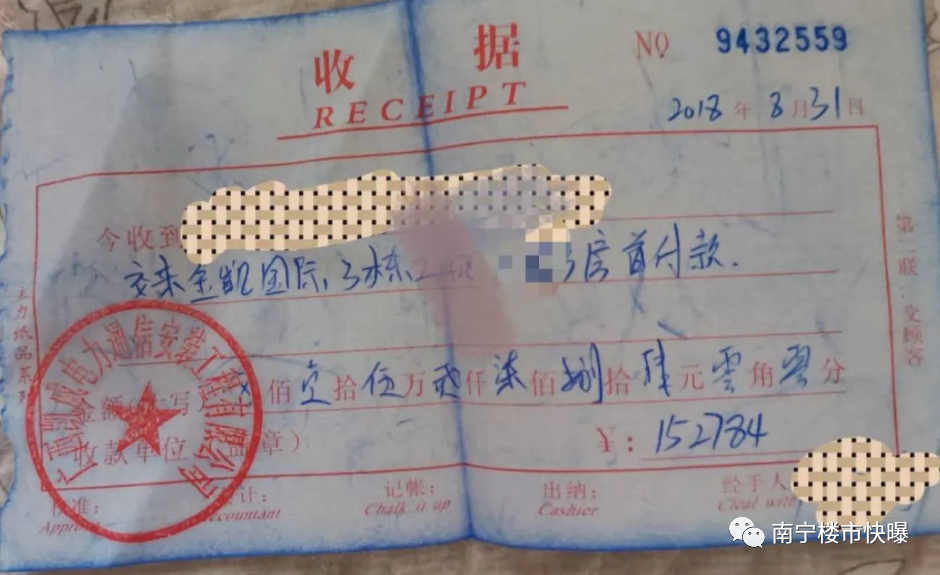 收 据
RECEIPT
NO 9432559
2018 年 8 月 31 日
今收到
交来金凯国际, 3栋,2 房首付款.
佰壹拾伍万贰仟柒佰捌拾肆元零角零分
金额(大写
收款单位 盖章）
¥：152784
核准： 会计： 记帐： 出纳： 经手人
Approve Accountant Chalk it up Cashier Cleal with
主力纸品系列
第二联：交顾客
电力通信安装工程有限公司
南宁楼市快曝